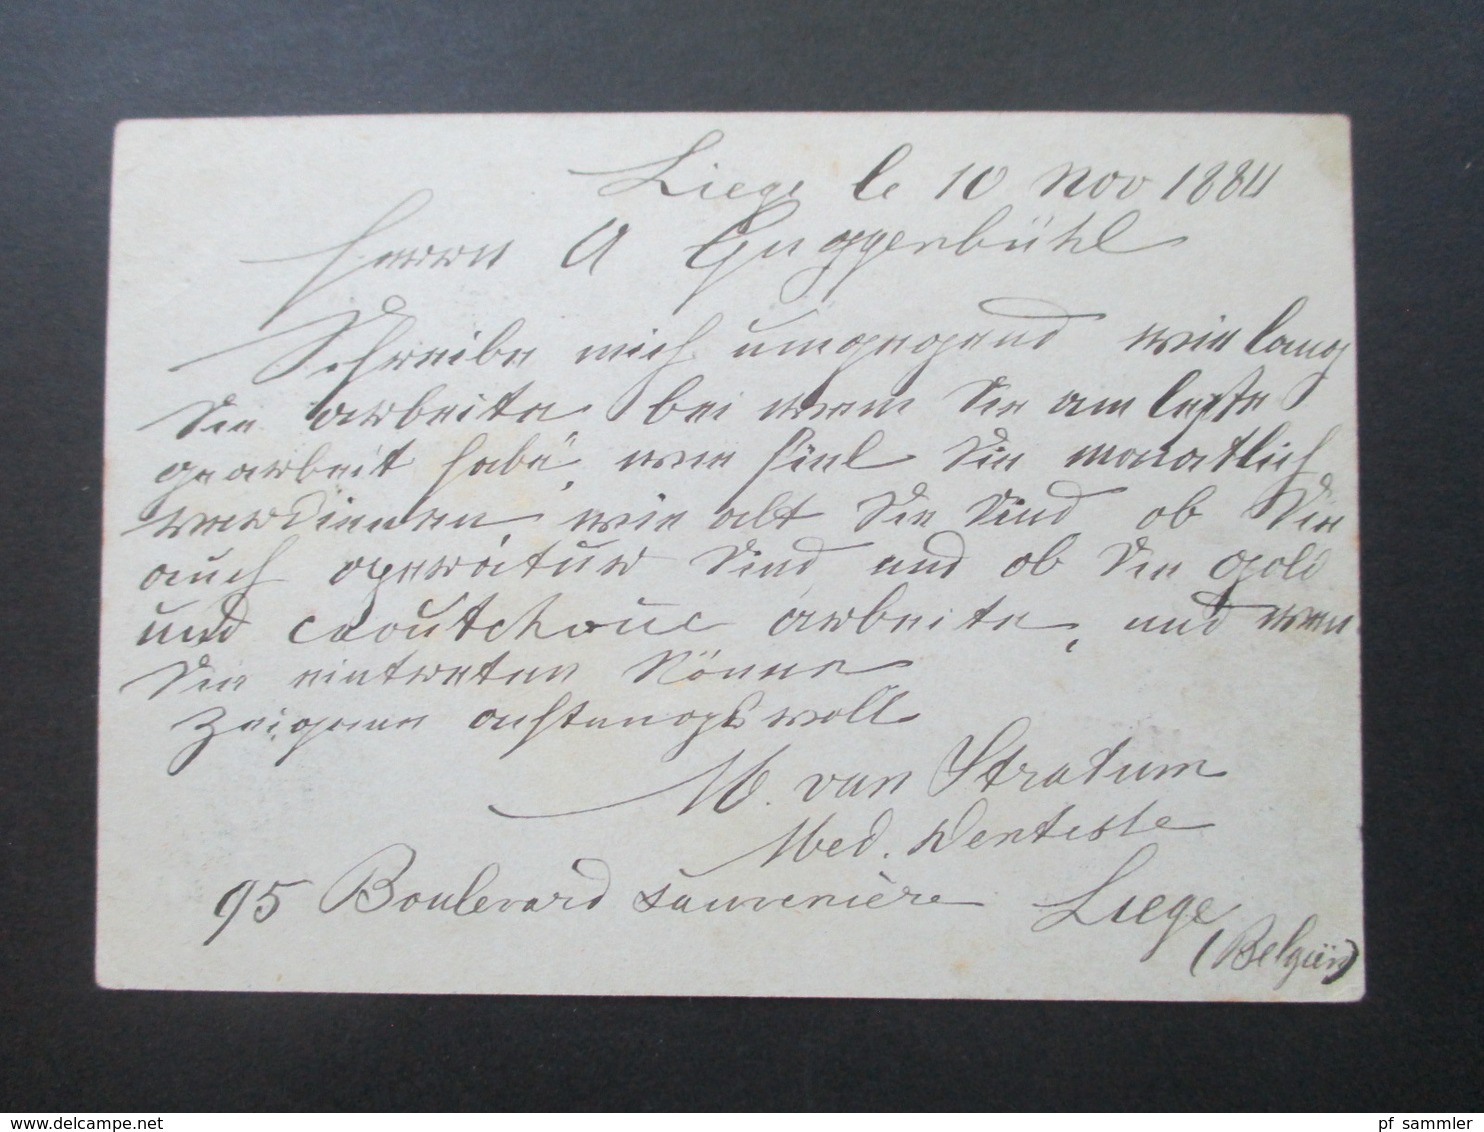 Liege le 10 Nov 1884
Herrn A Guggenbühl
Schreibe mich umgegend wie lang
Sie arbeite, bei wem Sie am letzte
gearbeit habe, wie fiel Sie monatlich
verdienen, wie alt Sie Sind ob Sie
auch operatur Sind und ob Sie gold
und caoutchouc arbeite, und wen
Sie eintreten könne
Zeigene achtenugsvoll
M. van Stratum
Med. Dentiste
95 Boulevard sauvenière Liege
(Belgiën)
pf sammler